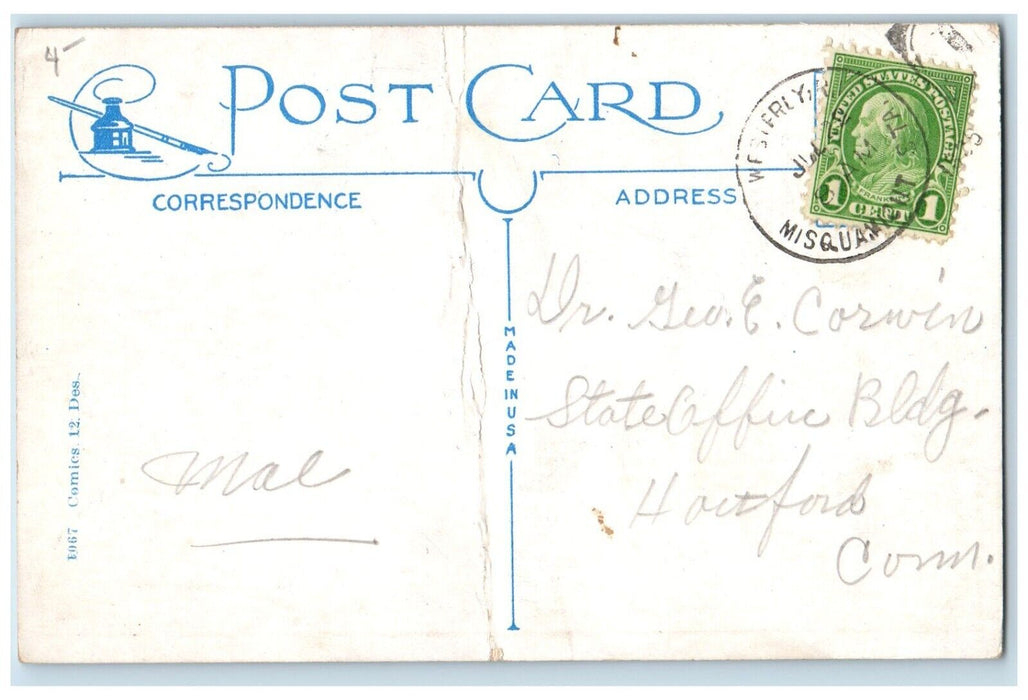 4-
POST CARD
CORRESPONDENCE
ADDRESS
WESTERLY,
MISQUAMICUT
STA.
UNITED STATES POSTAGE
FRANKLIN
1 CENT 1
MADE IN USA
Dr. Geo. E. Corwin
State Office Bldg.
Hartford
Conn.
Mal
1067 Comics. 12. Des.